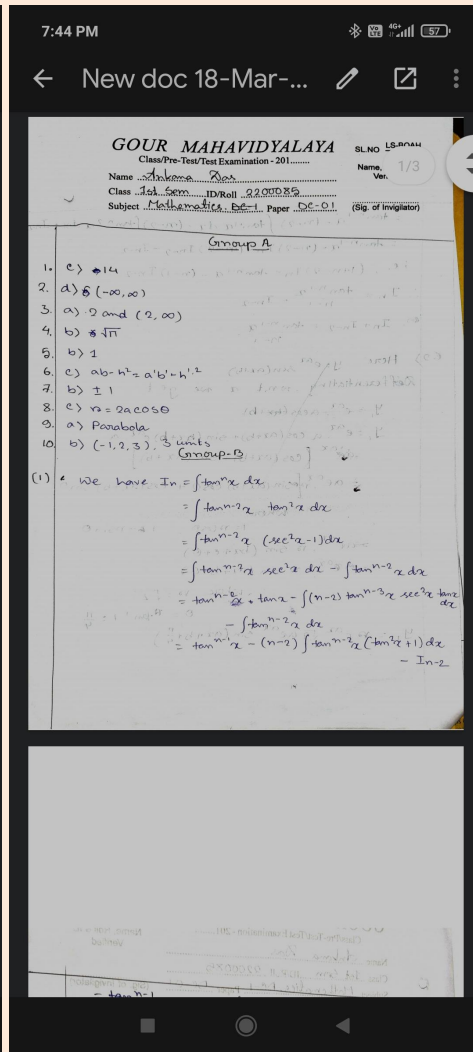 7:44 PM 4G+ 57
New doc 18-Mar-...
GOUR MAHAVIDYALAYA SL.NO
Class/Pre-Test/Test Examination - 201........ Name, 1/3
Name Ankana Das Ver.
Class 1st Sem ID/Roll 2200085
Subject Mathematics. DC-1 Paper DC-01 (Sig. of Invigilator)
Group A
1. c) 14
2. d) (-∞,∞)
3. a) 2 and (2, ∞)
4. b) √n
5. b) 1
6. c) ab-h² = a'b'-h'²
7. b) ± 1
8. c) r = 2a cosθ
9. a) Parabola
10. b) (-1, 2, 3), 3 units
Group-B
(1) We have In = ∫tanⁿx dx
= ∫tanⁿ⁻²x tan²x dx
= ∫tanⁿ⁻²x (sec²x-1)dx
= ∫tanⁿ⁻²x sec²x dx - ∫tanⁿ⁻²x dx
= tanⁿ⁻²x * tanx - ∫(n-2) tanⁿ⁻³x sec²x tanx dx
- ∫tanⁿ⁻²x dx
= tanⁿ⁻¹x - (n-2) ∫tanⁿ⁻²x (tan²x+1) dx
- In-2
= tan n-1